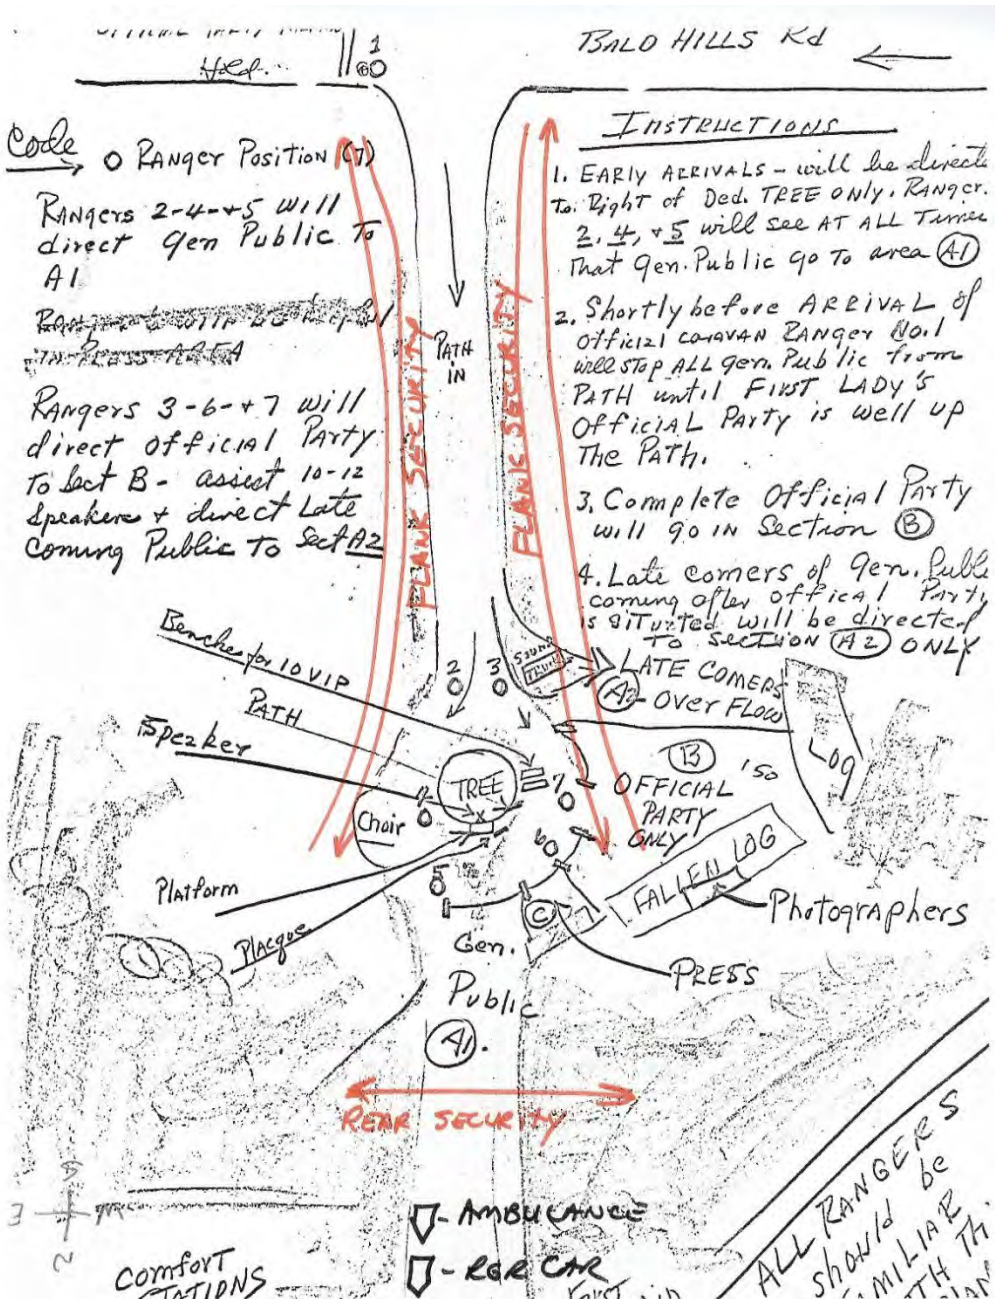 OFFICIAL PARTY
BALD HILLS Rd
1
Code
O RANGER POSITION (7)
RANGERS 2-4-+5 will
direct Gen Public To
A1
RANGERS 3-6-+7 will
direct official PARTY
To Sect B - assist 10-12
Speakers + direct Late
Coming Public To Sect A2
INSTRUCTIONS
1. EARLY ARRIVALS - will be directe
to Right of Ded. TREE ONLY. RANGER.
2, 4, +5 will see AT ALL Times
That Gen. Public go To area A1
2. Shortly before ARRIVAL of
official caravan RANGER No. 1
will stop ALL gen. Public from
PATH until FIRST LADY'S
OFFICIAL Party is well up
The PATH.
3. Complete Official Party
will go IN Section B
4. Late comers of Gen. Public
coming after official Party
is situated will be directed
To SECTION A2 ONLY
FLANK SECURITY
PATH
IN
FLANK SECURITY
Benches for 10 VIP
PATH
Speaker
2
3
SOUND
TRUCK
LATE COMERS
A2 - Over FLOW
LOG
TREE
X
7
B
'50
OFFICIAL
PARTY
ONLY
4
Choir
6
5
Platform
Placque
C
FALLEN LOG
Photographers
PRESS
Gen.
Public
A1.
REAR SECURITY
S
E
W
N
- AMBULANCE
- RGR CAR
Comfort
STATIONS
ALL RANGERS
should be